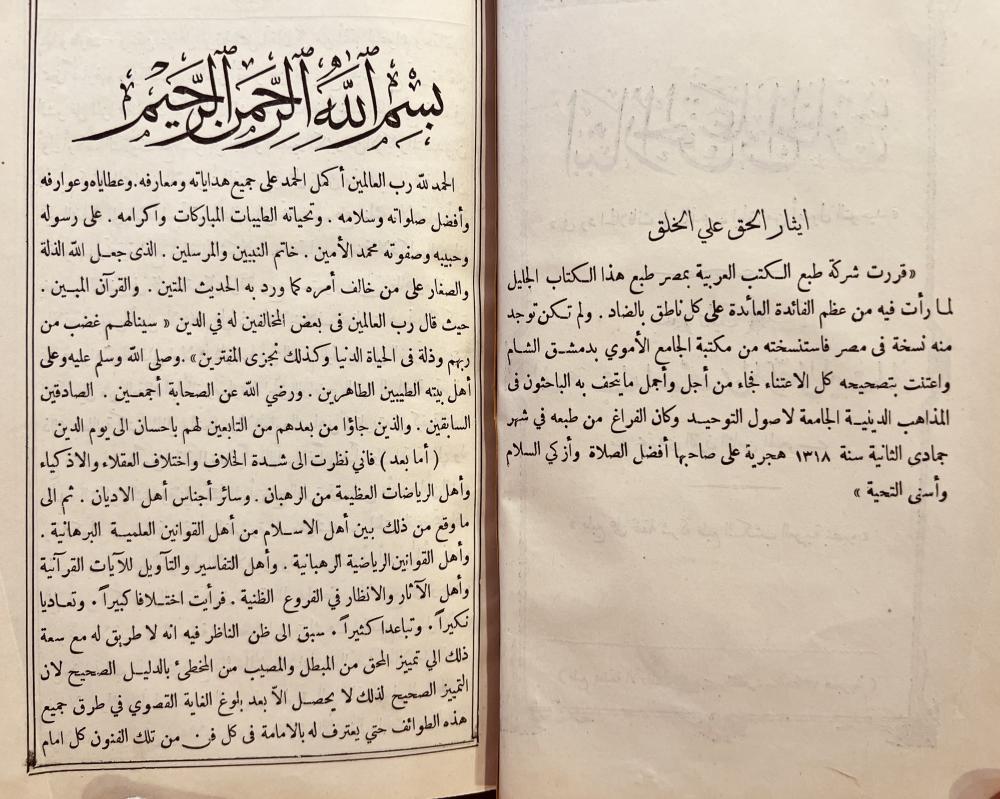 ايثار الحق علي الخلق
«قررت شركة طبع الكتب العربية بمصر طبع هذا الكتاب الجليل
لما رأت فيه من عظم الفائدة العائدة على كل ناطق بالضاد . ولم تكن توجد
منه نسخة فى مصر فاستنسخته من مكتبة الجامع الأموي بدمشق الشام
واعتنت بتصحيحه كل الاعتناء فجاء من أجل وأجمل مايتحف به الباحثون فى
المذاهب الدينية الجامعة لاصول التوحيد وكان الفراغ من طبعه في شهر
جمادى الثانية سنة ١٣١٨ هجرية على صاحبها أفضل الصلاة وأزكي السلام
وأسنى التحية »
بسم الله الرحمن الرحيم
الحمد لله رب العالمين أكمل الحمد على جميع هداياته ومعارفه . وعطاياه وعوارفه
وأفضل صلواته وسلامه . وتحياته الطيبات المباركات واكرامه . على رسوله
وحبيبه وصفوته محمد الأمين . خاتم النبيين والمرسلين . الذى جعل الله الذلة
والصغار على من خالف أمره كما ورد به الحديث المتين . والقرآن المبين .
حيث قال رب العالمين فى بعض المخالفين له في الدين « سينالهم غضب من
ربهم وذلة فى الحياة الدنيا وكذلك نجزى المفترين» . وصلى الله وسلم عليه وعلى
أهل بيته الطيبين الطاهرين . ورضي الله عن الصحابة أجمعين . الصادقين
السابقين . والذين جاؤا من بعدهم من التابعين لهم باحسان الى يوم الدين
( أما بعد ) فاني نظرت الى شدة الخلاف واختلاف العقلاء والاذكياء
وأهل الرياضات العظيمة من الرهبان . وسائر أجناس أهل الاديان . ثم الى
ما وقع من ذلك بين أهل الاسلام من أهل القوانين العلمية البرهانية .
وأهل القوانين الرياضية الرهبانية . وأهل التفاسير والتآويل للآيات القرآنية
وأهل الآثار والانظار في الفروع الظنية . فرأيت اختلافا كبيراً . وتعاديا
نكيراً . وتباعدا كثيراً . سبق الى ظن الناظر فيه انه لا طريق له مع سعة
ذلك الي تمييز المحق من المبطل والمصيب من المخطئ بالدليل الصحيح لان
التمييز الصحيح لذلك لا يحصل الاّ بعد بلوغ الغاية القصوي في طرق جميع
هذه الطوائف حتي يعترف له بالامامة فى كل فن من تلك الفنون كل امام